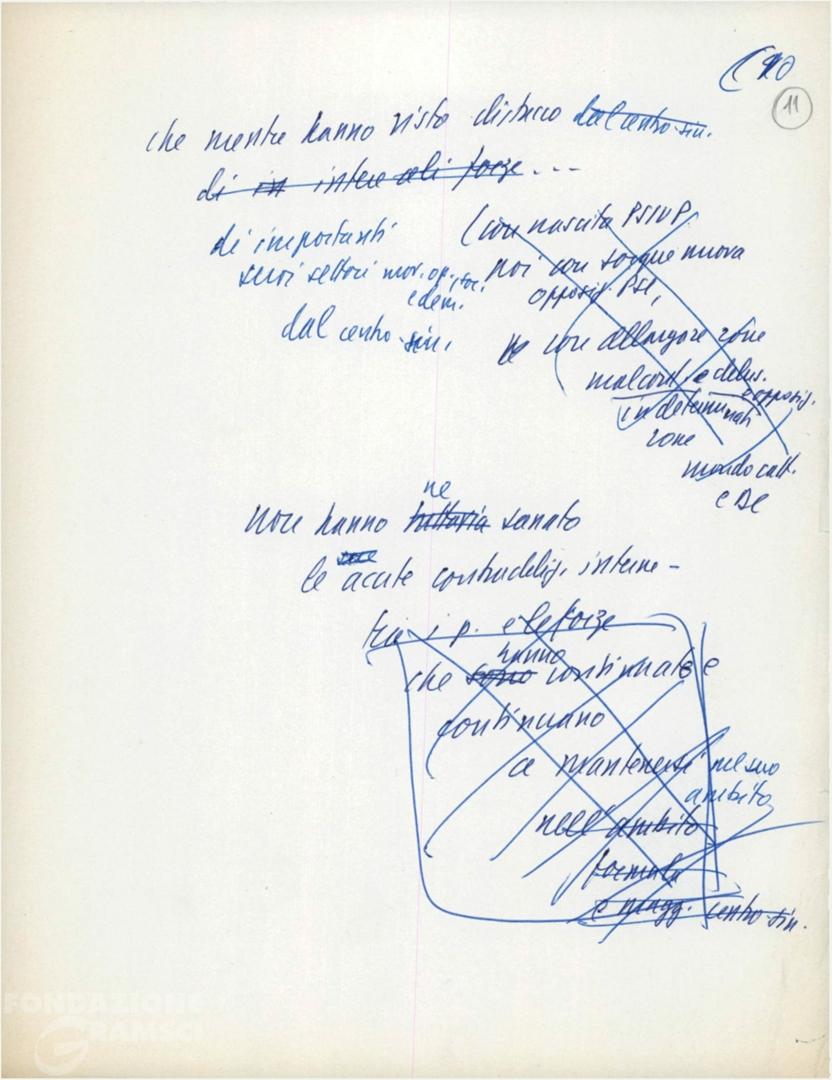 (10
11
che mentre hanno visto distacco dal centro-sin.
di in intere ali forze...
di importanti
suoi settori mov. op., soc.
e dem.
dal centro-sin.
(con nascita PSIUP
poi con sorgue nuova
opposiz. PSI,
con allargare zone
malcont. e delus.
e opposiz.
in determinati
zone
mondo catt.
e DC
ne
non hanno tuttavia sanato
le sue acute contraddiz. interne -
tra i p. e le forze
hanno
che sono continuato e
continuano
a mantenersi nel suo
ambito
nell'ambito
formula
e magg. centro-sin.
FONDAZIONE
GRAMSCI